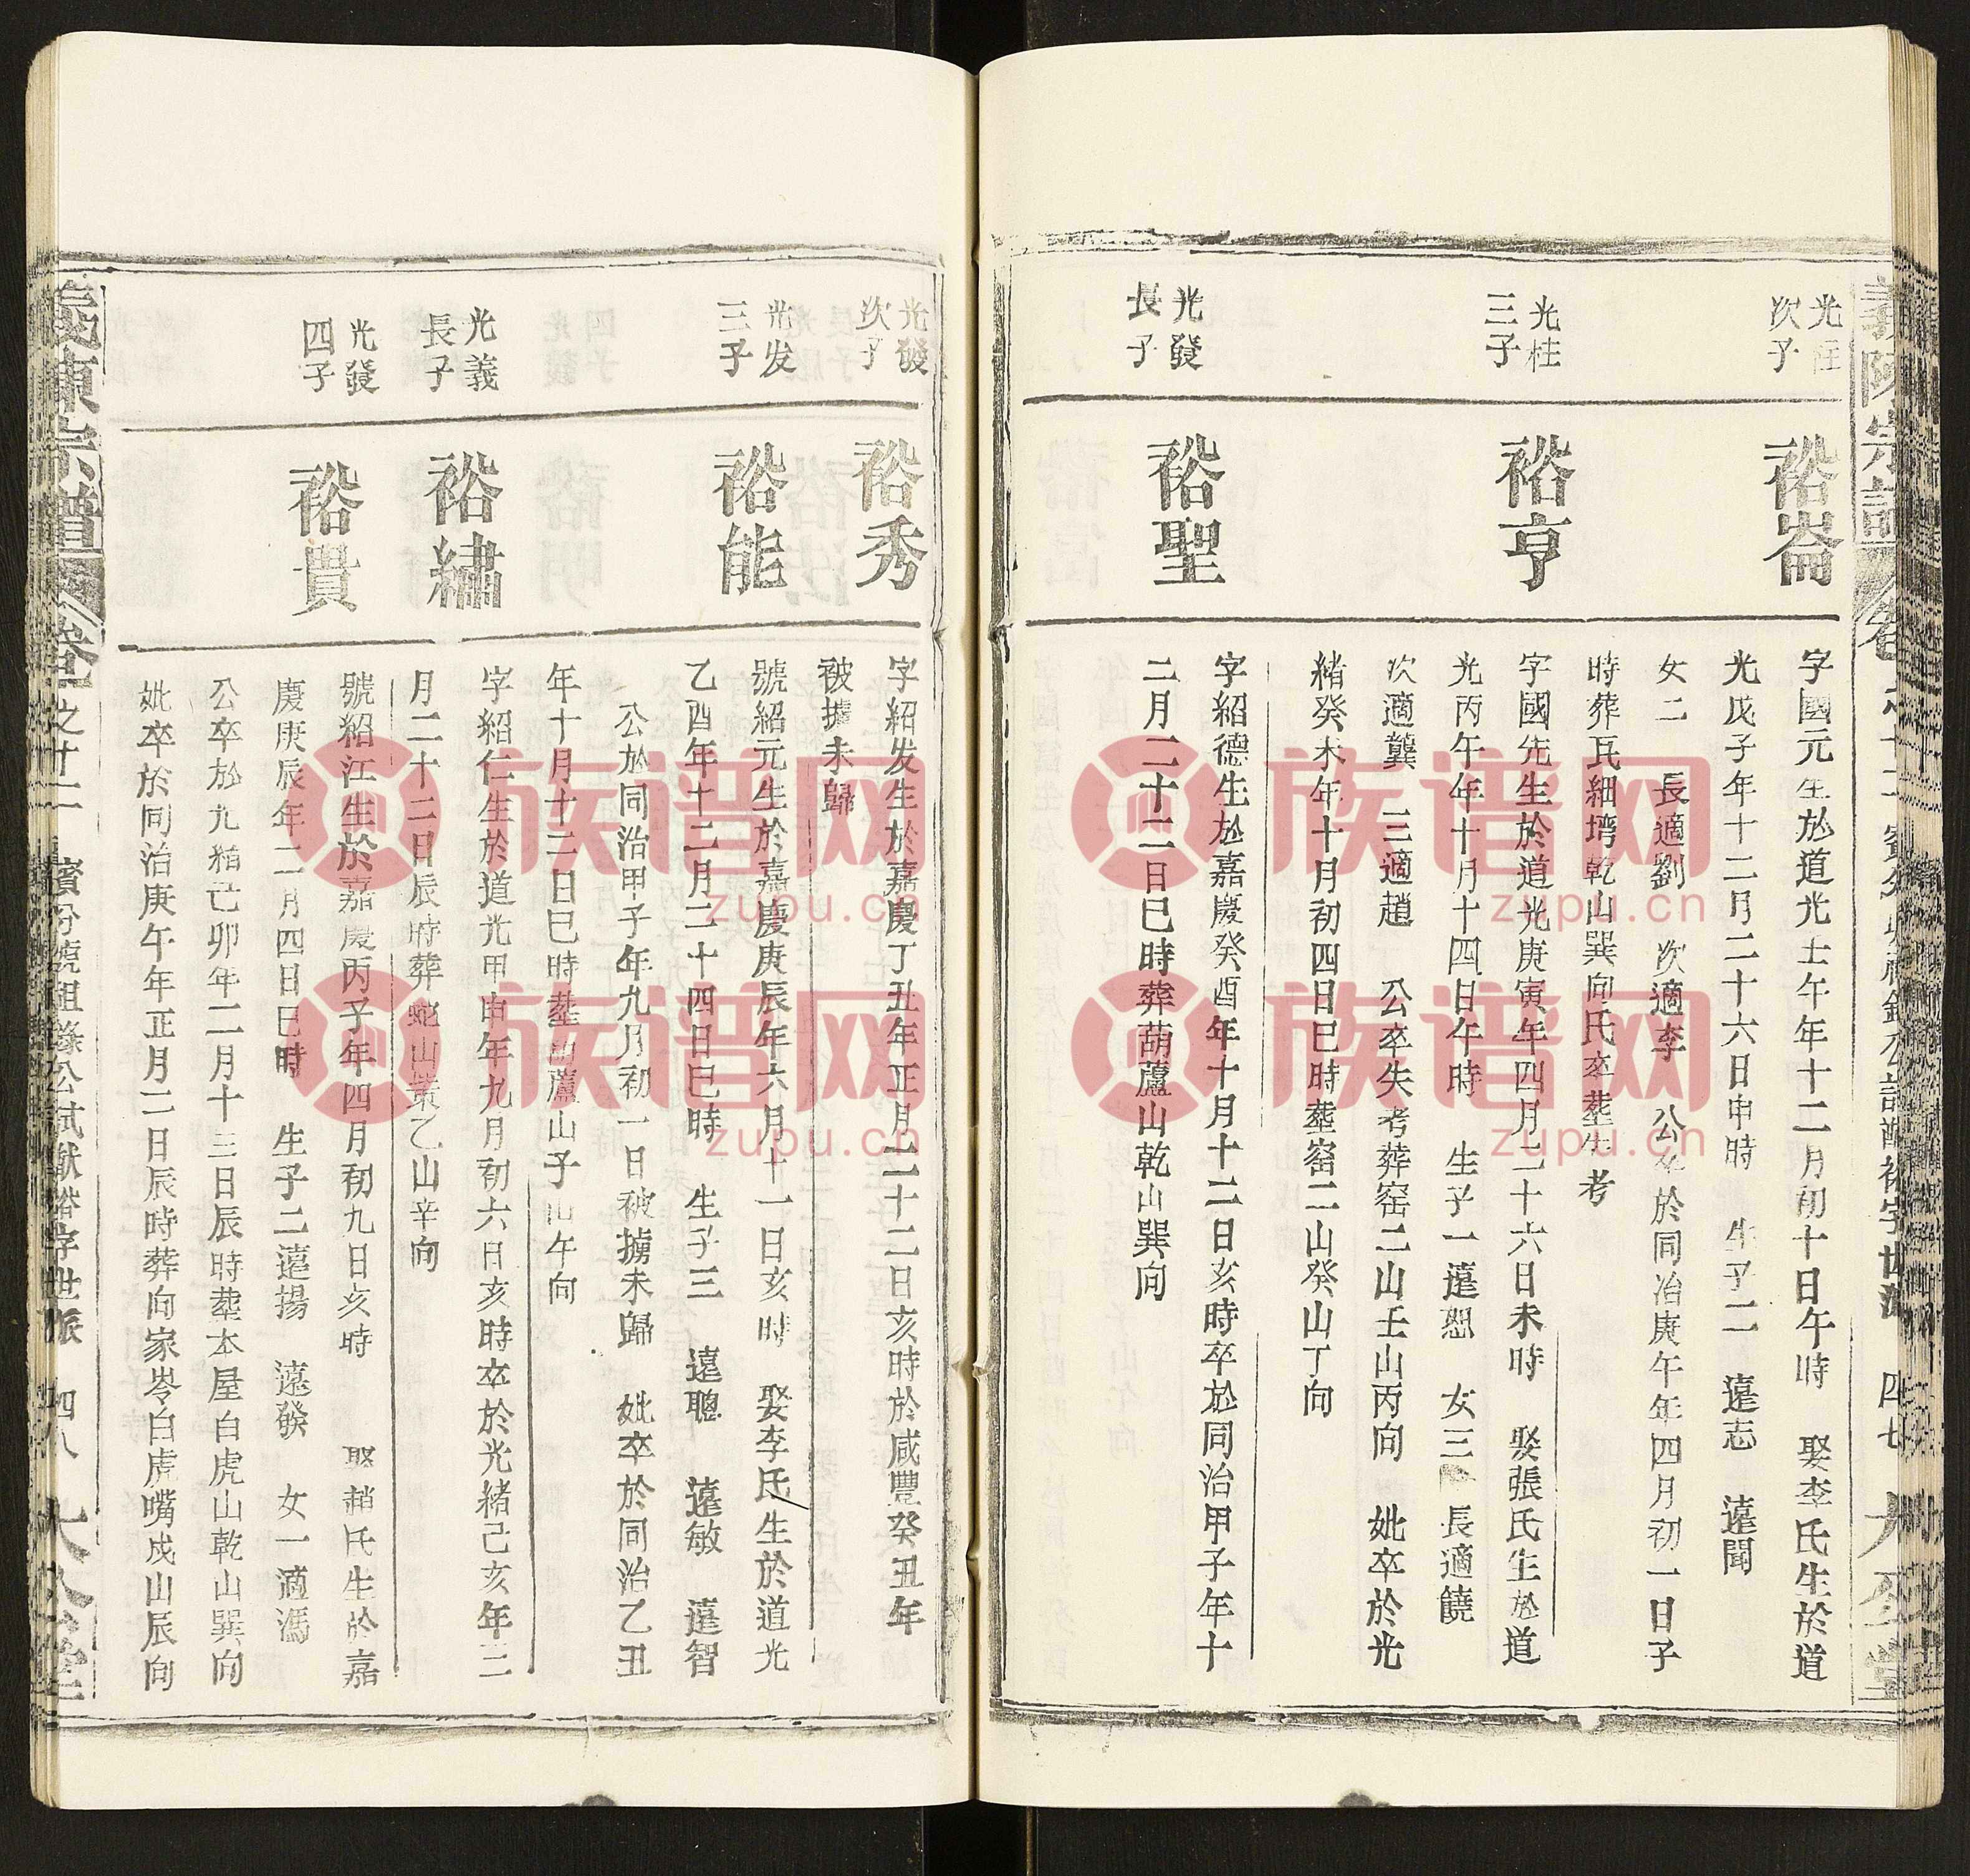 光桂
次子
裕崙
字國元生於道光壬午年十二月初十日午時 娶李氏生於道
光戊子年十二月二十六日申時 生子二 遠志 遠聞
女二 長適劉 次適李 公卒於同治庚午年四月初一日子
時葬瓦細塆乾山巽向氏卒塟失考
光桂
三子
裕亨
字國先生於道光庚寅年四月二十六日未時 娶張氏生於道
光丙午年十月十四日午時 生子一遠恕 女三 長適饒
次適龔 三適趙 公卒失考葬窑二山壬山丙向 妣卒於光
緒癸未年十月初四日巳時塟窑二山癸山丁向
光發
長子
裕聖
字紹德生於嘉慶癸酉年十月十二日亥時卒於同治甲子年十
二月二十二日巳時葬葫蘆山乾山巽向
光發
次子
裕秀
字紹发生於嘉慶丁丑年正月二十二日亥時於咸豐癸丑年
被擄未歸
光发
三子
裕能
號紹元生於嘉慶庚辰年六月十一日亥時 娶李氏生於道光
乙酉年十二月二十四日巳時 生子三 遠聰 遠敏 遠智
公於同治甲子年九月初一日被擄未歸 妣卒於同治乙丑
年十月十二日巳時塟葫蘆山子山午向
光義
長子
裕繡
字紹仁生於道光甲申年九月初六日亥時卒於光緒己亥年三
月二十二日辰時葬蛇山嘴乙山辛向
光發
四子
裕貴
號紹江生於嘉慶丙子年四月初九日亥時 娶趙氏生於嘉
慶庚辰年二月四日巳時 生子二遠揚 遠發 女一適馮
公卒於光緒己卯年二月十三日辰時塟本屋白虎山乾山巽向
妣卒於同治庚午年正月二日辰時葬向家岺白虎嘴戍山辰向
義陳宗譜
卷 之十二
四七
大公堂
義陳宗譜
卷 之十二
四八
大公堂
族谱网
zupu.cn
族谱网
zupu.cn
族谱网
zupu.cn
族谱网
zupu.cn